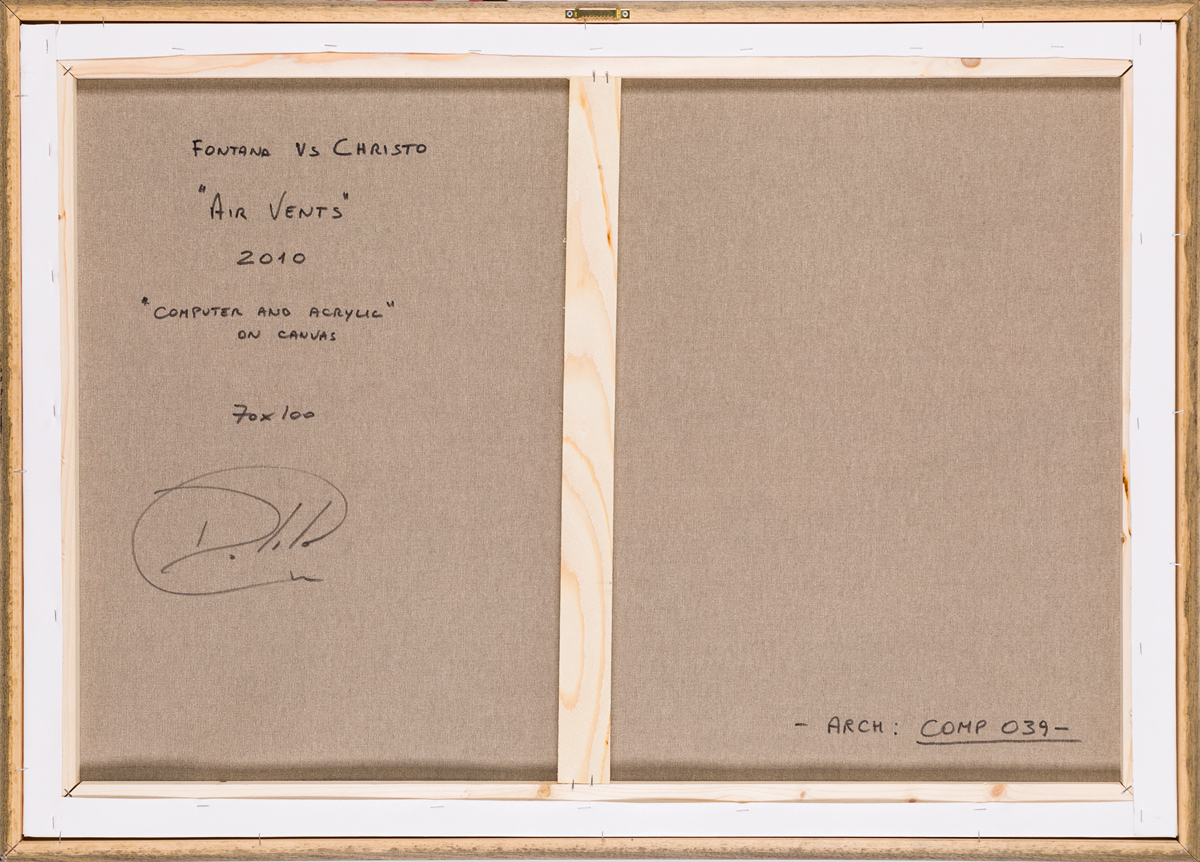 FONTANA VS CHRISTO
"AIR VENTS"
2010
"COMPUTER AND ACRYLIC"
ON CANVAS
70x100
- ARCH: COMP 039-